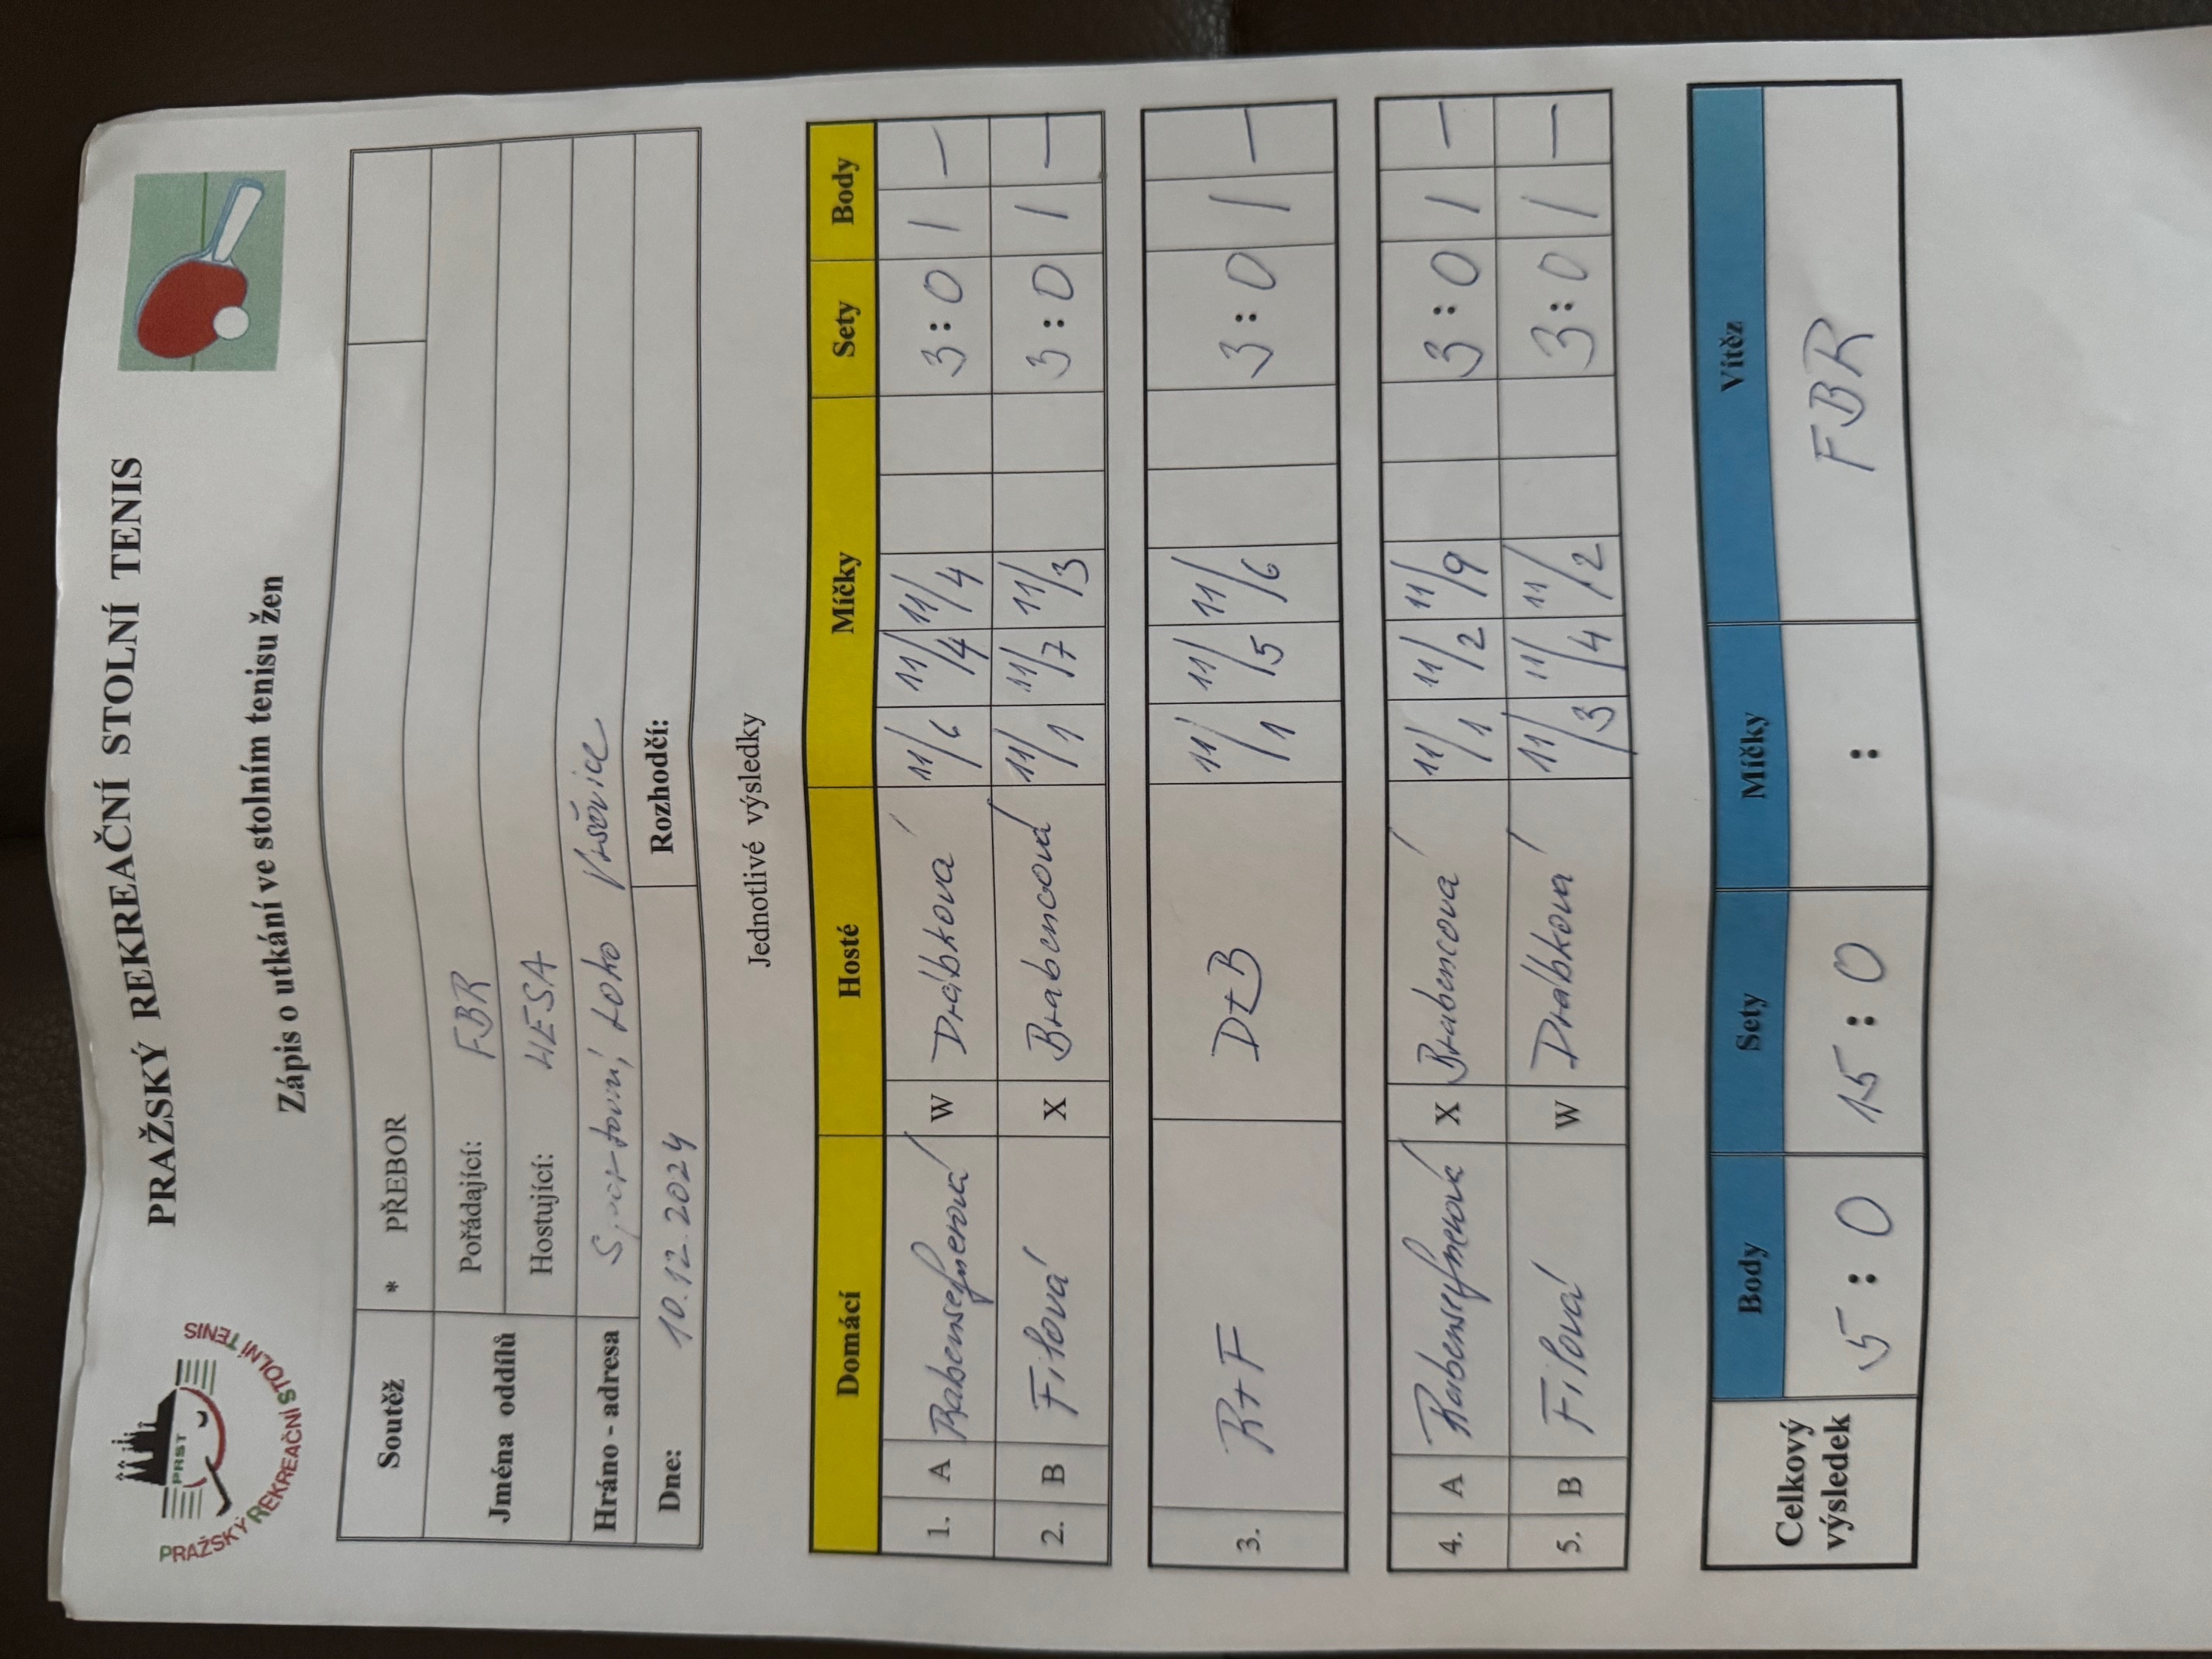 PRAŽSKÝ REKREAČNÍ STOLNÍ TENIS
PRST
PRAŽSKÝ REKREAČNÍ STOLNÍ TENIS
Zápis o utkání ve stolním tenisu žen
Soutěž * PŘEBOR
Jména oddílů Pořádající: FBR
Hostující: HESA
Hráno - adresa Sportovní, Loko Vršovice
Dne: 10.12.2024 Rozhodčí:
Jednotlivé výsledky
Domácí Hosté Míčky Sety Body
1. A Rabenseifnerová W Drábková 11/6 11/4 11/4 3:0 1 —
2. B Filová X Brabencová 11/1 11/7 11/3 3:0 1 —
3. R+F D+B 11/1 11/5 11/6 3:0 1 —
4. A Rabenseifnerová X Brabencová 11/1 11/2 11/9 3:0 1 —
5. B Filová W Drábková 11/3 11/4 11/2 3:0 1 —
Celkový výsledek Body Sety Míčky Vítěz
5:0 15:0 : FBR